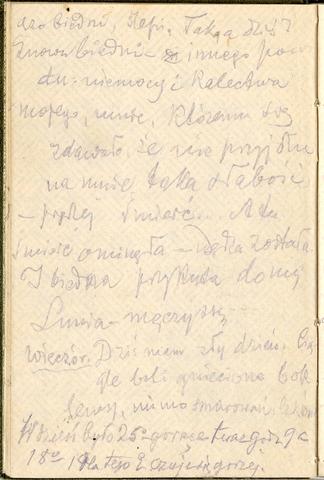 dzo biedni, Stefi. Taka dziś i
znowu biedni z innego powo
du – niemocy i kalectwa
mojego, mnie, któremu się
zdawało, że nie przyjdzie
na mnie taka słabość
– prędzej śmierć... A tu
śmierć ominęła – nędza została
I biedna przykuta do mej
Lusia – męczy się –
wieczór. Dziś mam zły dzień. Cią
gle boli gnieciona bok
lewy, mimo smarowań
W dzień było 25° gorąca teraz godz 9 a
18° i dlatego czuję się gorzej.